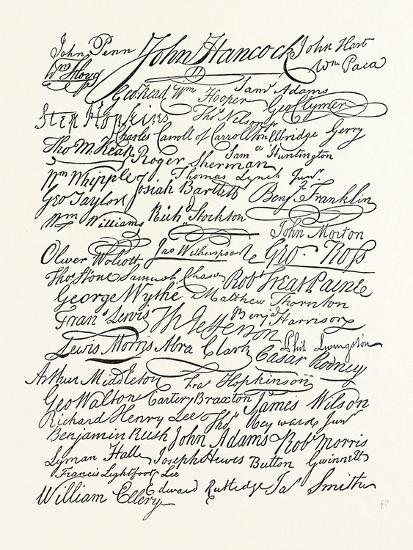 John Penn John Hancock John Hart
Wm Floyd Wm Paca
Geo Read Wm Hooper Saml Adams Geo Clymer
Step Hopkins Thos Nelson jr
Charles Carroll of Carrollton Elbridge Gerry
Tho M:Kean Roger Sherman Saml Huntington
Wm Whipple Thomas Lynch Junr
Geo Taylor Josiah Bartlett Benj Franklin
Wm Williams Richd Stockton John Morton
Oliver Wolcott Jno Witherspoon Geo Ross
Thos Stone Samuel Chase Robt Treat Paine
George Wythe Matthew Thornton
Frans Lewis Th Jefferson Benj Harrison
Lewis Morris Abra Clark Phil Livingston
Cæsar Rodney
Arthur Middleton Fras Hopkinson
Geo Walton Carter Braxton James Wilson
Richard Henry Lee Thos Heyward Junr
Benjamin Rush John Adams Robt Morris
Lyman Hall Joseph Hewes Button Gwinnett
Francis Lightfoot Lee
William Ellery Edward Rutledge Jas Smith